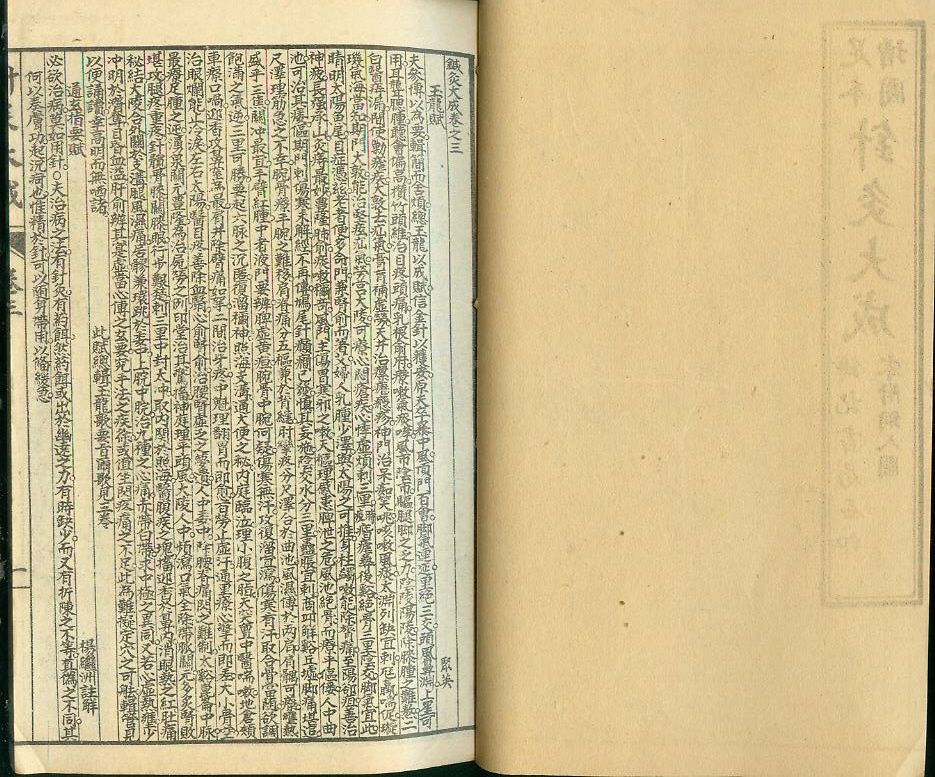 鍼灸大成卷之三
玉龍賦 聚英
夫參博以為要輯簡而舍煩總玉龍以成賦信金針以獲安原夫卒暴中風頂門百會腳氣連延里絕三交頭風鼻淵上星可
用耳聾腮腫聽會偏高攢竹頭維治目疼頭痛乳根俞府療嗽氣痰哮風市陰市驅腿腳之乏力陰陵陽陵除膝腫之難熬二
白醫痔漏間使勦瘧疾大敦去疝氣膏肓補虛勞天井治瘰癧癮疹神門治呆痴笑咷咳嗽風痰太淵列缺宜刺尪羸喘促璇
璣氣海當知期門大敦能治堅痃疝氣勞宮大陵可療心悶瘡痍心悸虛煩刺三里時疫痎瘧尋後谿絕骨三里陰交腳氣宜此
睛明太陽魚尾目症憑茲老者便多命門兼腎俞而著艾婦人乳腫少澤與太陽之可推身柱蠲嗽能除膂痛至陽卻疸善治
神疲長強承山灸痔最妙豐隆肺俞痰嗽稱奇風門主傷冒寒邪之嗽天樞理感患脾泄之危風池絕骨而療乎傴僂人中曲
池可治其痿傴期門刺傷寒未解經不再傳鳩尾針癲癇已發慎其妄施陰交水分三里蠱脹宜刺商邱解谿丘墟腳痛堪追
尺澤理筋急之不幸腕骨療手腕之難移肩脊痛兮五樞兼於背縫肘攣疼兮尺澤合於曲池風濕傳於兩肩肩髃可療壅熱
盛乎三焦關沖最宜手臂紅腫中渚液門要辨脾虛黃疸腕骨中脘何疑傷寒無汗攻復溜宜瀉傷寒有汗取合谷當隨欲調
飽滿之氣逆三里可勝要起六脉之沉匿復溜稱神照海支溝通大便之秘內庭臨泣理小腹之䐜天突膻中醫喘嗽地倉頰
車療口喎迎香攻鼻窒為最肩井除臂痛如拏二間治牙疼中魁理翻胃而即愈百勞止虛汗通里療心驚而即瘥大小骨空
治眼爛能止冷淚左右太陽醫目疼善除血翳心俞腎俞治腰腎虛乏之夢遺人中委中除腰脊痛閃之難制太谿崑崙申脉
最療足腫之迍湧泉關元豐隆為治尸勞之例印堂治其驚搐神庭理乎頭風大陵人中頻瀉口氣全除帶脉關元多灸腎敗
堪攻腿腳重疼針髖骨膝關膝眼行步艱楚刺三里中封太冲取內關於照海醫腹疾之塊搐迎香於鼻內消眼熱之紅肚痛
秘結大陵合外關於支溝腿風濕痛居髎兼環跳於委中上脘中脘治九種之心痛赤帶白帶求中極之異同又若心虛熱壅少
冲明於濟奪目昏血溢肝俞辨其實虛當心傳之玄要究手法之疾徐或值挫閃疼痛之不足此為難擬定穴之可祛輯管見
以便誦讀幸高明而無哂諸 此賦總輯玉龍歌要旨爾歌見三卷
通玄指要賦 楊繼洲註解
必欲治病莫如用針○夫治病之法有針灸有藥餌然藥餌或出於幽遠之方有時缺少而又有新陳之不等真偽之不同其
何以奏膚功起沉疴也惟精於針可以隨身帶用以備緩急
針灸大成 卷三 一